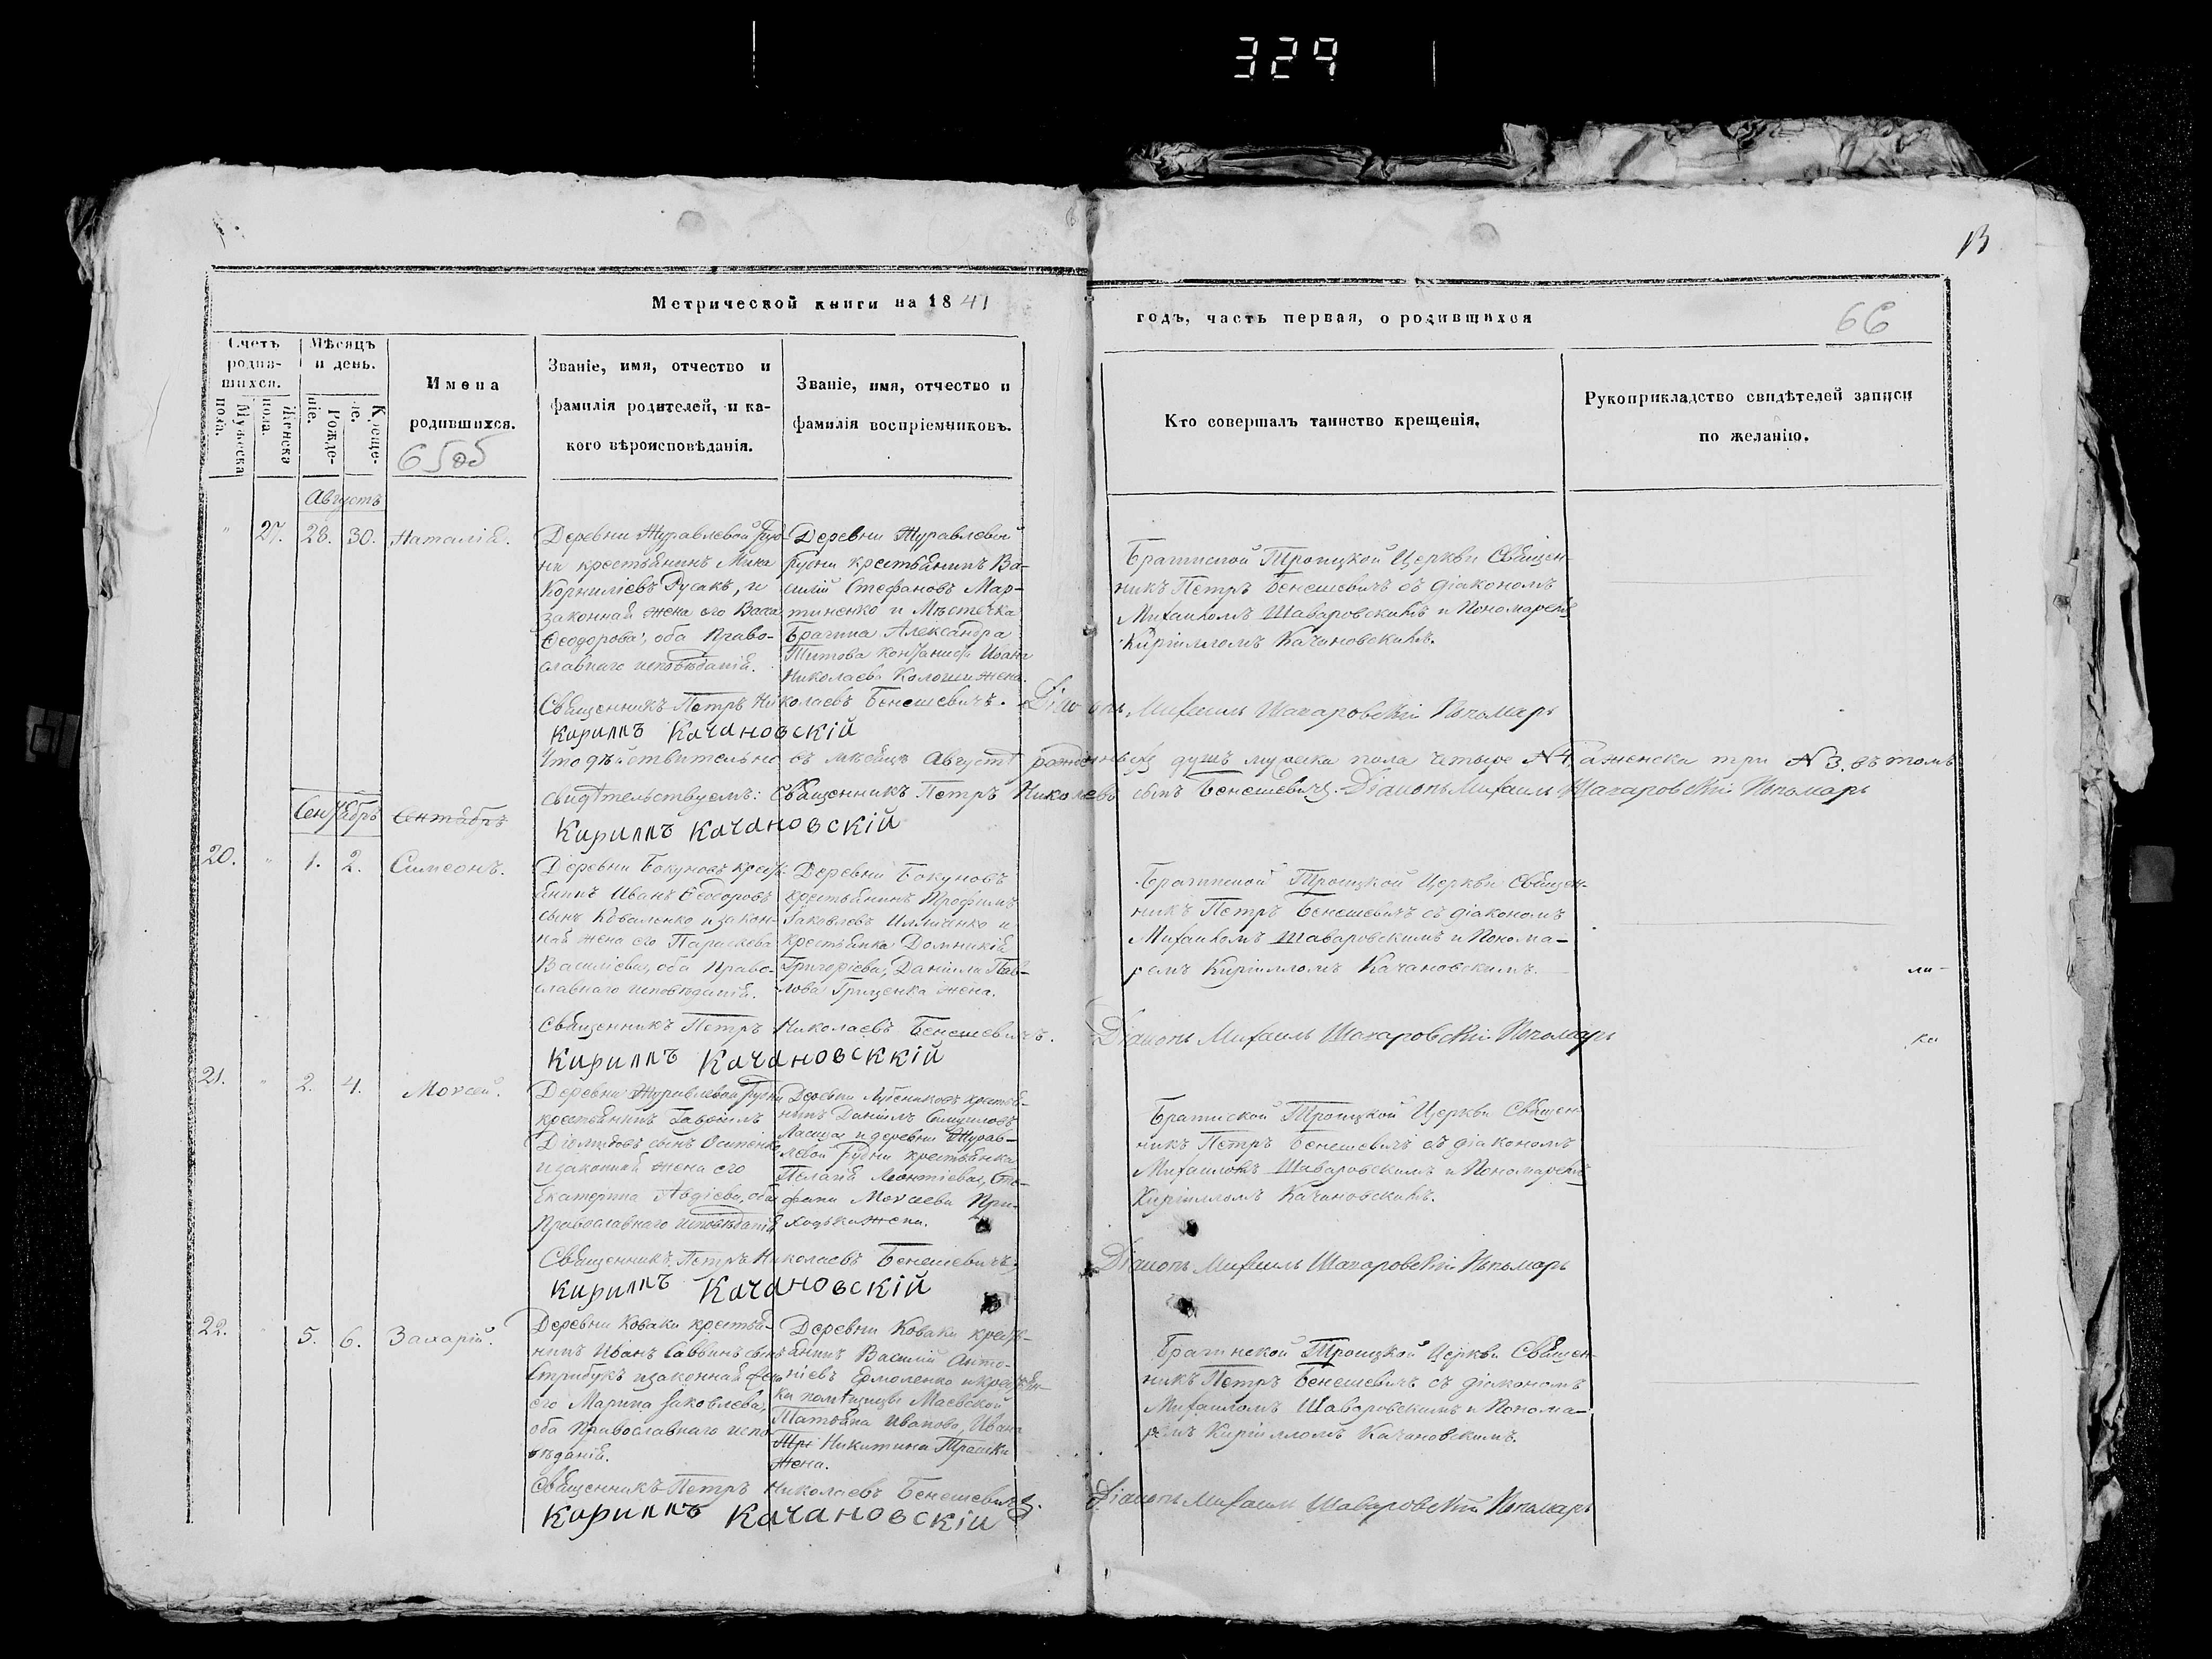 329
13
Метрической книги на 1841
годъ, часть первая, о родившихся
66
Счетъ родив-шихся.
Мужеска пола.
Женска пола.
Мѣсяцъ и день.
Рожде-ніе.
Креще-
Имена
родившихся.
65об
Званіе, имя, отчество и
фамилія родителей, и ка-
кого вѣроисповѣданія.
Званіе, имя, отчество и
фамилія воспріемниковъ.
Кто совершалъ таинство крещенія.
Рукоприкладство свидѣтелей записи
по желанію.
Августъ
" 27. 28. 30. Наталія.
Деревни Журавлевой Руд-
ни крестьянинъ Мина
Корниліевъ Русакъ, и
законная жена его Васса
Ѳеодорова, оба Право-
славнаго исповѣданія.
Деревни Журавлевой
Рудни крестьянинъ Ва-
силій Стефановъ Мар-
тиненко и Мѣстечка
Брагина Александра
Титова Ивана
Николаева жена.
Брагинской Троицкой Церкви Священ-
никъ Петръ Бенешевичъ съ діакономъ
Михаиломъ Шаваровскимъ и Пономаремъ
Кирилломъ Качановскимъ.
Священникъ Петръ Николаевъ Бенешевичъ. Діаконъ Михаилъ Шаваровскій Пономарь
Кириллъ Качановскій
Что дѣйствительно въ мѣсяцѣ Августѣ рожденныхъ душъ мужска пола четыре №4, а женска три №3. въ томъ
свидѣтельствуемъ: Священникъ Петръ Николаевъ сынъ Бенешевичъ. Діаконъ Михаилъ Шаваровскій Пономарь
Кириллъ Качановскій
Сентябрь Сентябрь
20. " 1. 2. Симеонъ.
Деревни Бакуновъ крест-
янинъ Иванъ Ѳеодоровъ
сынъ Коваленко и закон-
ная жена его Параскева
Василіева, оба Право-
славнаго исповѣданія.
Деревни Бакуновъ
крестьянинъ Трофимъ
Яковлевъ Илличенко и
крестьянка Домникія
Григоріева, Даніила Пав-
лова Гриценка жена.
Брагинской Троицкой Церкви Священ-
никъ Петръ Бенешевичъ съ діакономъ
Михаиломъ Шаваровскимъ и Понома-
ремъ Кирилломъ Качановскимъ.
ли-
Священникъ Петръ Николаевъ Бенешевичъ. Діаконъ Михаилъ Шаваровскій Пономарь
ка
Кириллъ Качановсккій
21. " 2. 4. Моѵсей.
Деревни Журавлевой Рудни
крестьянинъ Гавріилъ
Діомидовъ сынъ Осипенко
и законная жена его
Екатерина Авдіева, оба
Православнаго исповѣданія
Деревни крестья-
нинъ Даніилъ
и деревни Журав-
левой Рудни крестьянка
Пелагія Леонтіева, Сте-
фана Моѵсеева При-
ходька жена.
Брагинской Троицкой Церкви Священ-
никъ Петръ Бенешевичъ съ діакономъ
Михаиломъ Шаваровскимъ и Пономаремъ
Кирилломъ Качановскимъ.
Священникъ Петръ Николаевъ Бенешевичъ Діаконъ Михаилъ Шаваровскій Пономарь
Кириллъ Качановскій
22. " 5. 6. Захарій.
Деревни Коваки крестья-
нинъ Иванъ Саввинъ сынъ
Стрибукъ и законная жена
его Марина Яковлева,
оба Православнаго испо-
вѣданія.
Деревни Коваки крест-
янинъ Василій Анто-
ніевъ Ермоленко и крестьян-
ка помѣщицы Маевской
Татьяна Иванова, Ивана
Трі Никитина Трошки
жена.
Брагинской Троицкой Церкви Священ-
никъ Петръ Бенешевичъ съ діакономъ
Михаиломъ Шаваровскимъ и Понома-
ремъ Кирилломъ Качановскимъ.
Священникъ Петръ Николаевъ Бенешевичъ. Діаконъ Михаилъ Шаваровскій Пономарь
Кириллъ Качановскій